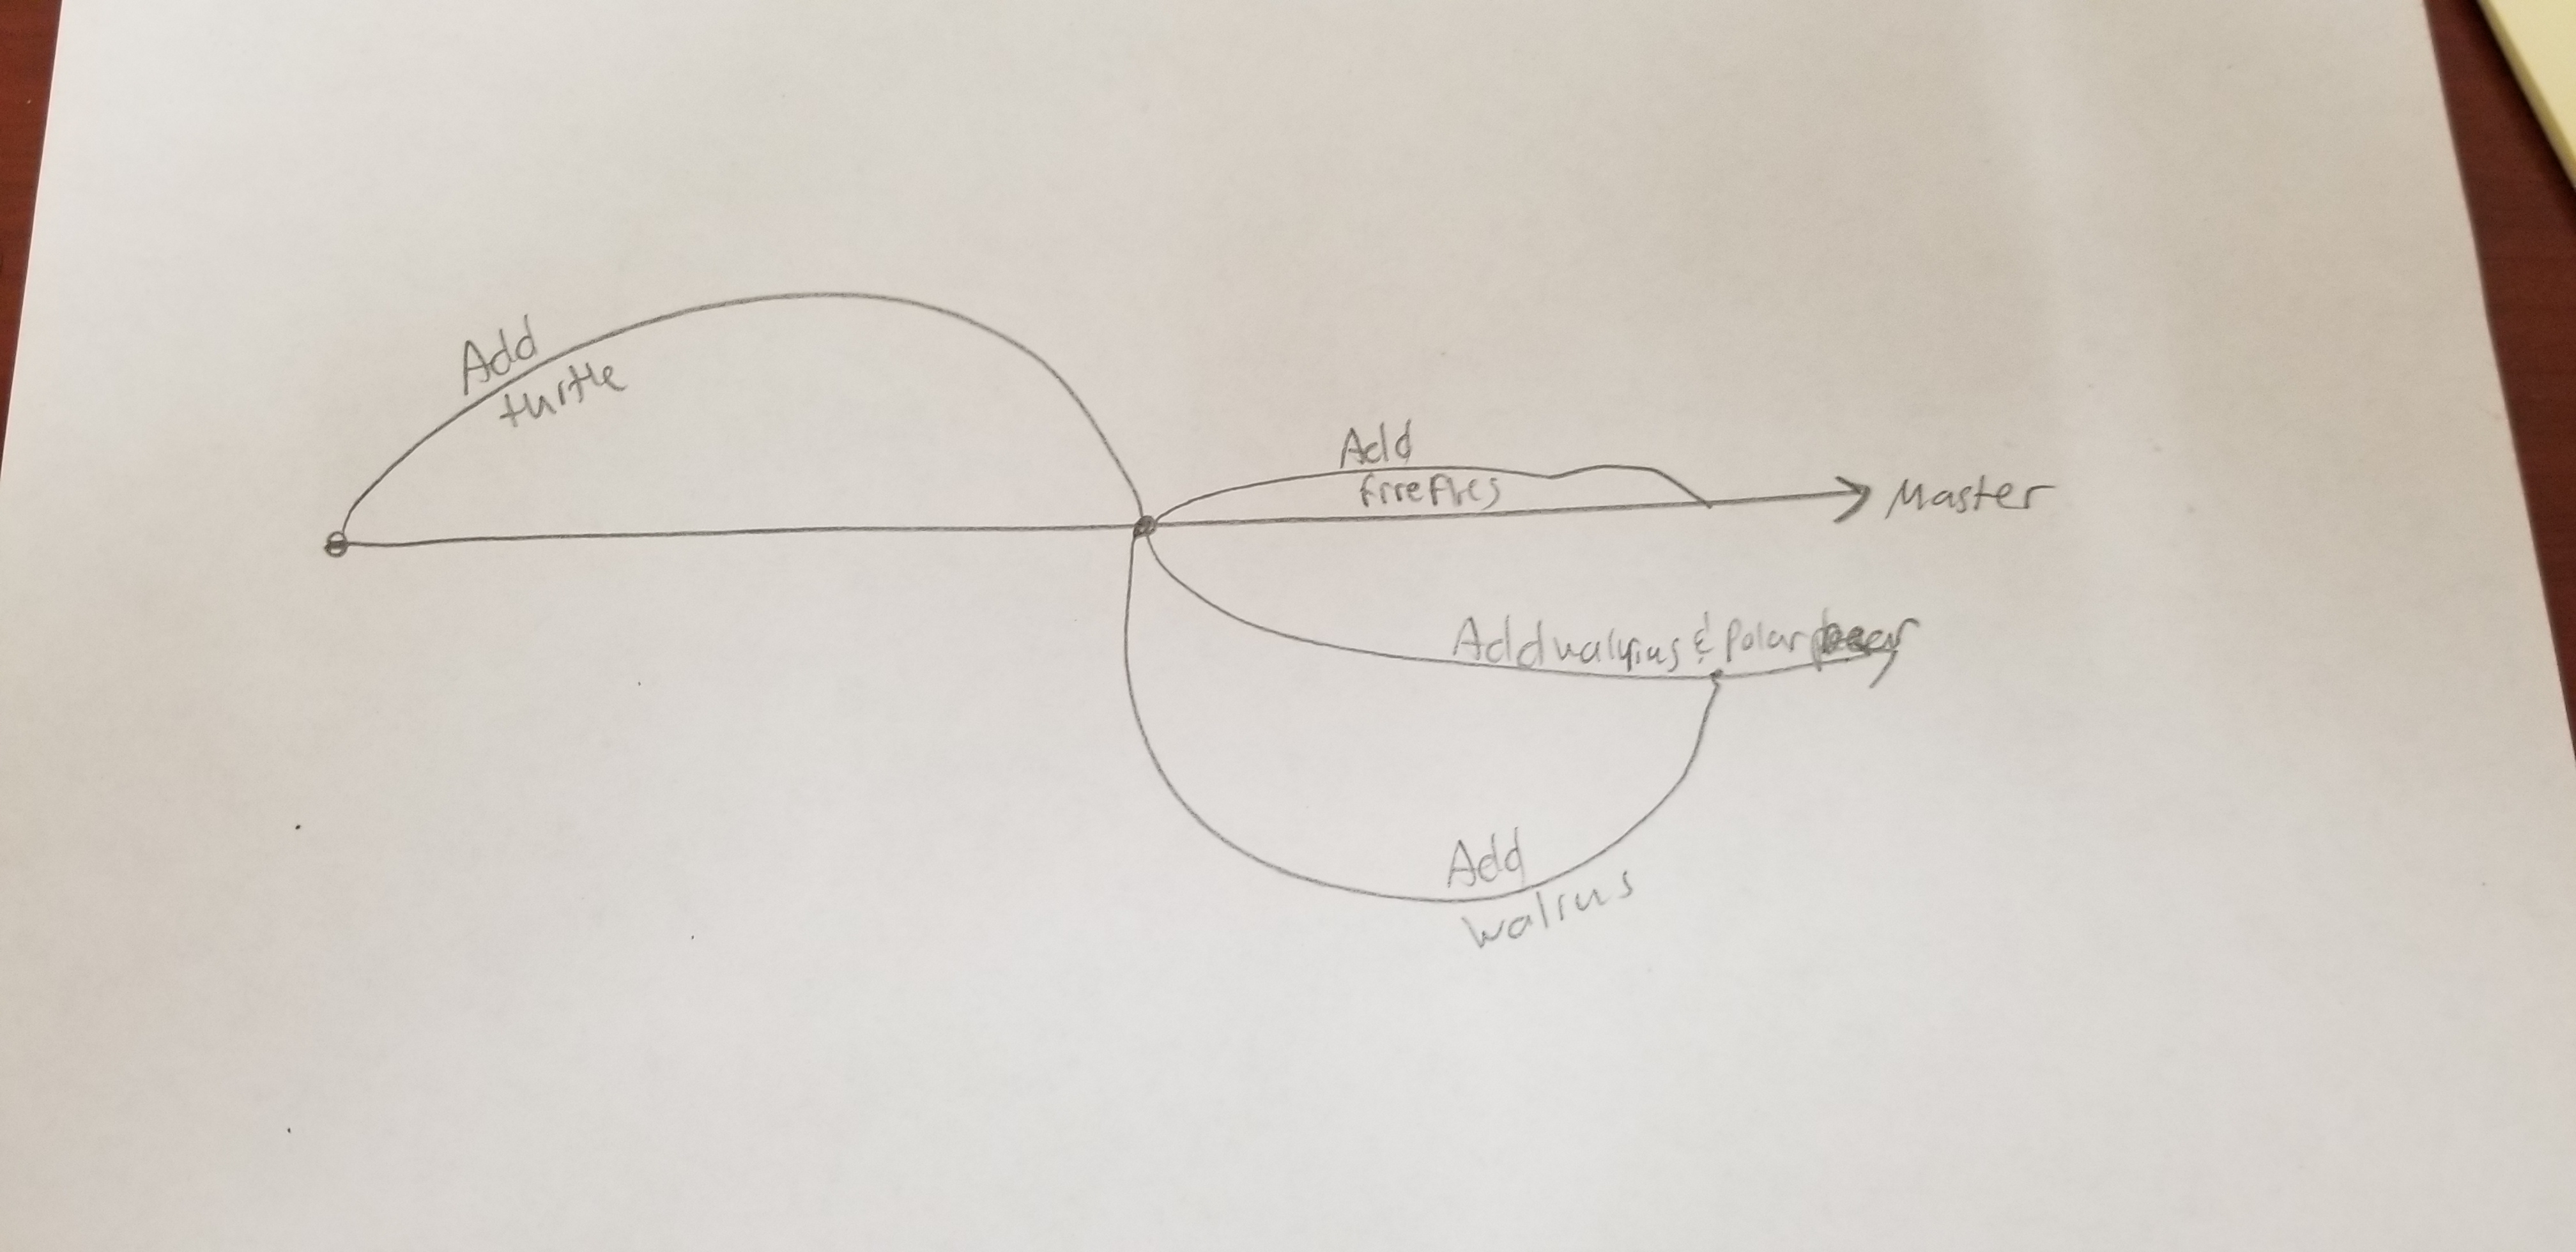 Add
turtle
Add
fireflies
Master
Add walrus & Polar
Add
walrus